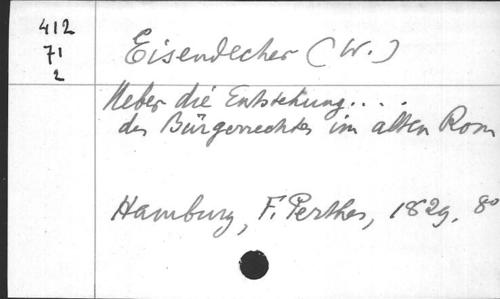 412
71
2
Eisendecher (W.)
Ueber die Entstehung....
des Bürgerrechtes im alten Rom
Hamburg, F. Perthes, 1829, 8º